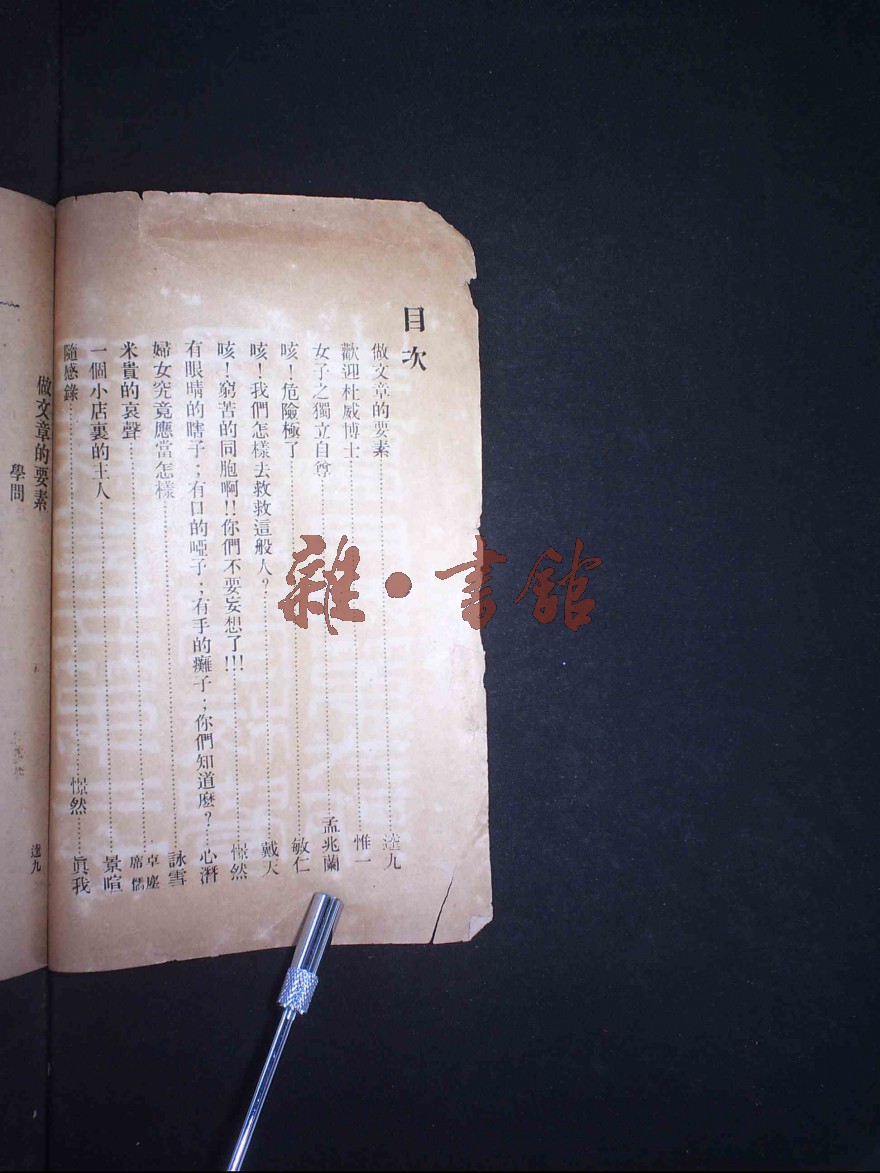 目次
做文章的要素……達九
歡迎杜威博士……惟一
女子之獨立自尊……孟兆蘭
咳!危險極了……敏仁
咳!我們怎樣去救救這般人?……戴天
咳!窮苦的同胞啊!!你們不要妄想了!!!……憬然
有眼睛的瞎子;有口的啞子;有手的癱子;你們知道麼?……心潛
婦女究竟應當怎樣……詠雪
米貴的哀聲……卓塵 席儒
一個小店裏的主人……景暄
隨感錄……憬然……眞我
做文章的要素 達九
學問
雜·書館